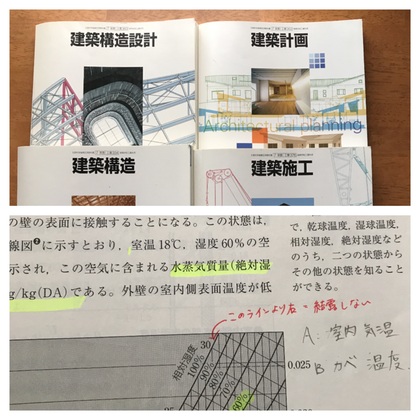 建築構造設計
建築計画
Architectural planning
建築構造
建築施工
の壁の表面に接触することになる。この状態は,
線図❷に示すとおり, 室温18℃, 湿度60%の空
示され, この空気に含まれる水蒸気質量(絶対湿
g/kg(DA)である。外壁の室内側表面温度が低
で, 乾球温度, 湿球温度,
相対湿度, 絶対湿度など
のうち, 二つの状態から
その他の状態を知ること
ができる。
このラインより左=結露しない
A: 室内気温
B カベ 温度
相対湿度
30
100%
90%
80%
70%
60%
0.025
25